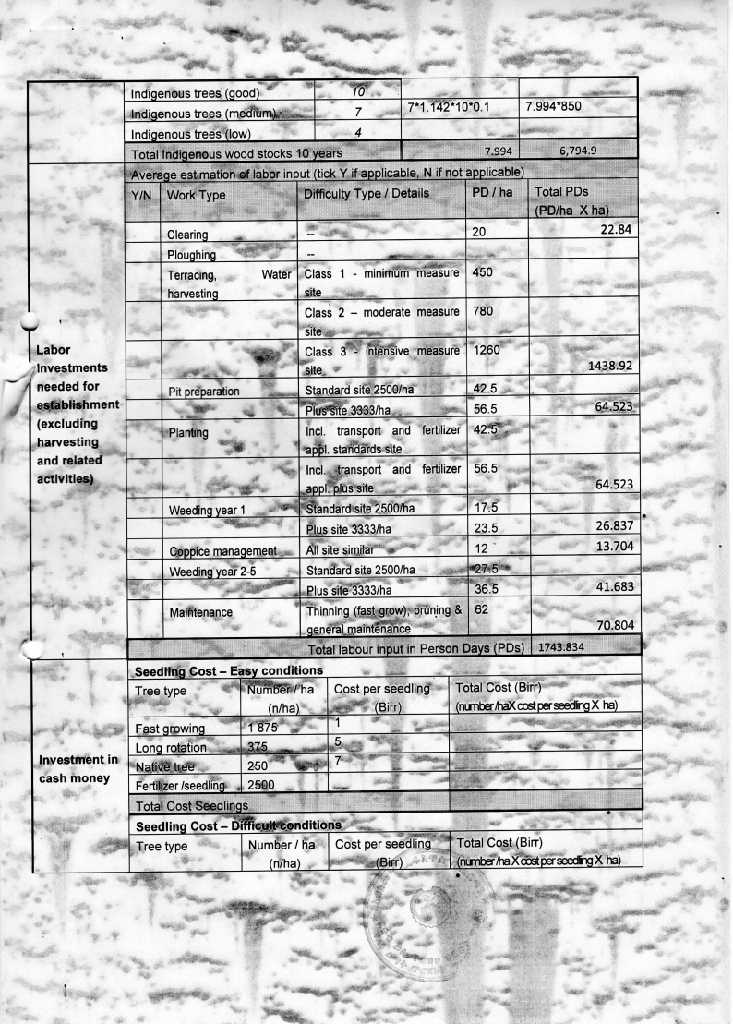 Indigenous trees (good) 10
Indigenous trees (medium) 7 7*1.142*10*0.1 7.994*850
Indigenous trees (low) 4
Total Indigenous wood stocks 10 years 7.994 6,794.9
Average estimation of labor input (tick Y if applicable, N if not applicable)
Y/N Work Type Difficulty Type / Details PD / ha Total PDs
(PD/ha X ha)
Clearing -- 20 22.84
Ploughing --
Terracing, Water Class 1 - minimum measure 450
harvesting site
Class 2 – moderate measure 780
site
Class 3 - intensive measure 1260
site 1438.92
Labor
Investments
needed for
establishment
(excluding
harvesting
and related
activities)
Pit preparation Standard site 2500/ha 42.5
Plus site 3333/ha 56.5 64.523
Planting Incl. transport and fertilizer 42.5
appl. standards site
Incl. transport and fertilizer 56.5
appl. plus site 64.523
Weeding year 1 Standard site 2500/ha 17.5
Plus site 3333/ha 23.5 26.837
Coppice management All site similar 12 13.704
Weeding year 2-5 Standard site 2500/ha 27.5
Plus site 3333/ha 36.5 41.683
Maintenance Thinning (fast grow), pruning & 62
general maintenance 70.804
Total labour input in Person Days (PDs) 1743.834
Investment in
cash money
Seedling Cost – Easy conditions
Tree type Number / ha Cost per seedling Total Cost (Birr)
(n/ha) (Birr) (number/haX cost per seedling X ha)
Fast growing 1 875 1
Long rotation 375 5
Native tree 250 7
Fertilizer /seedling 2500
Total Cost Seedlings
Seedling Cost – Difficult conditions
Tree type Number / ha Cost per seedling Total Cost (Birr)
(n/ha) (Birr) (number/haX cost per seedling X ha)